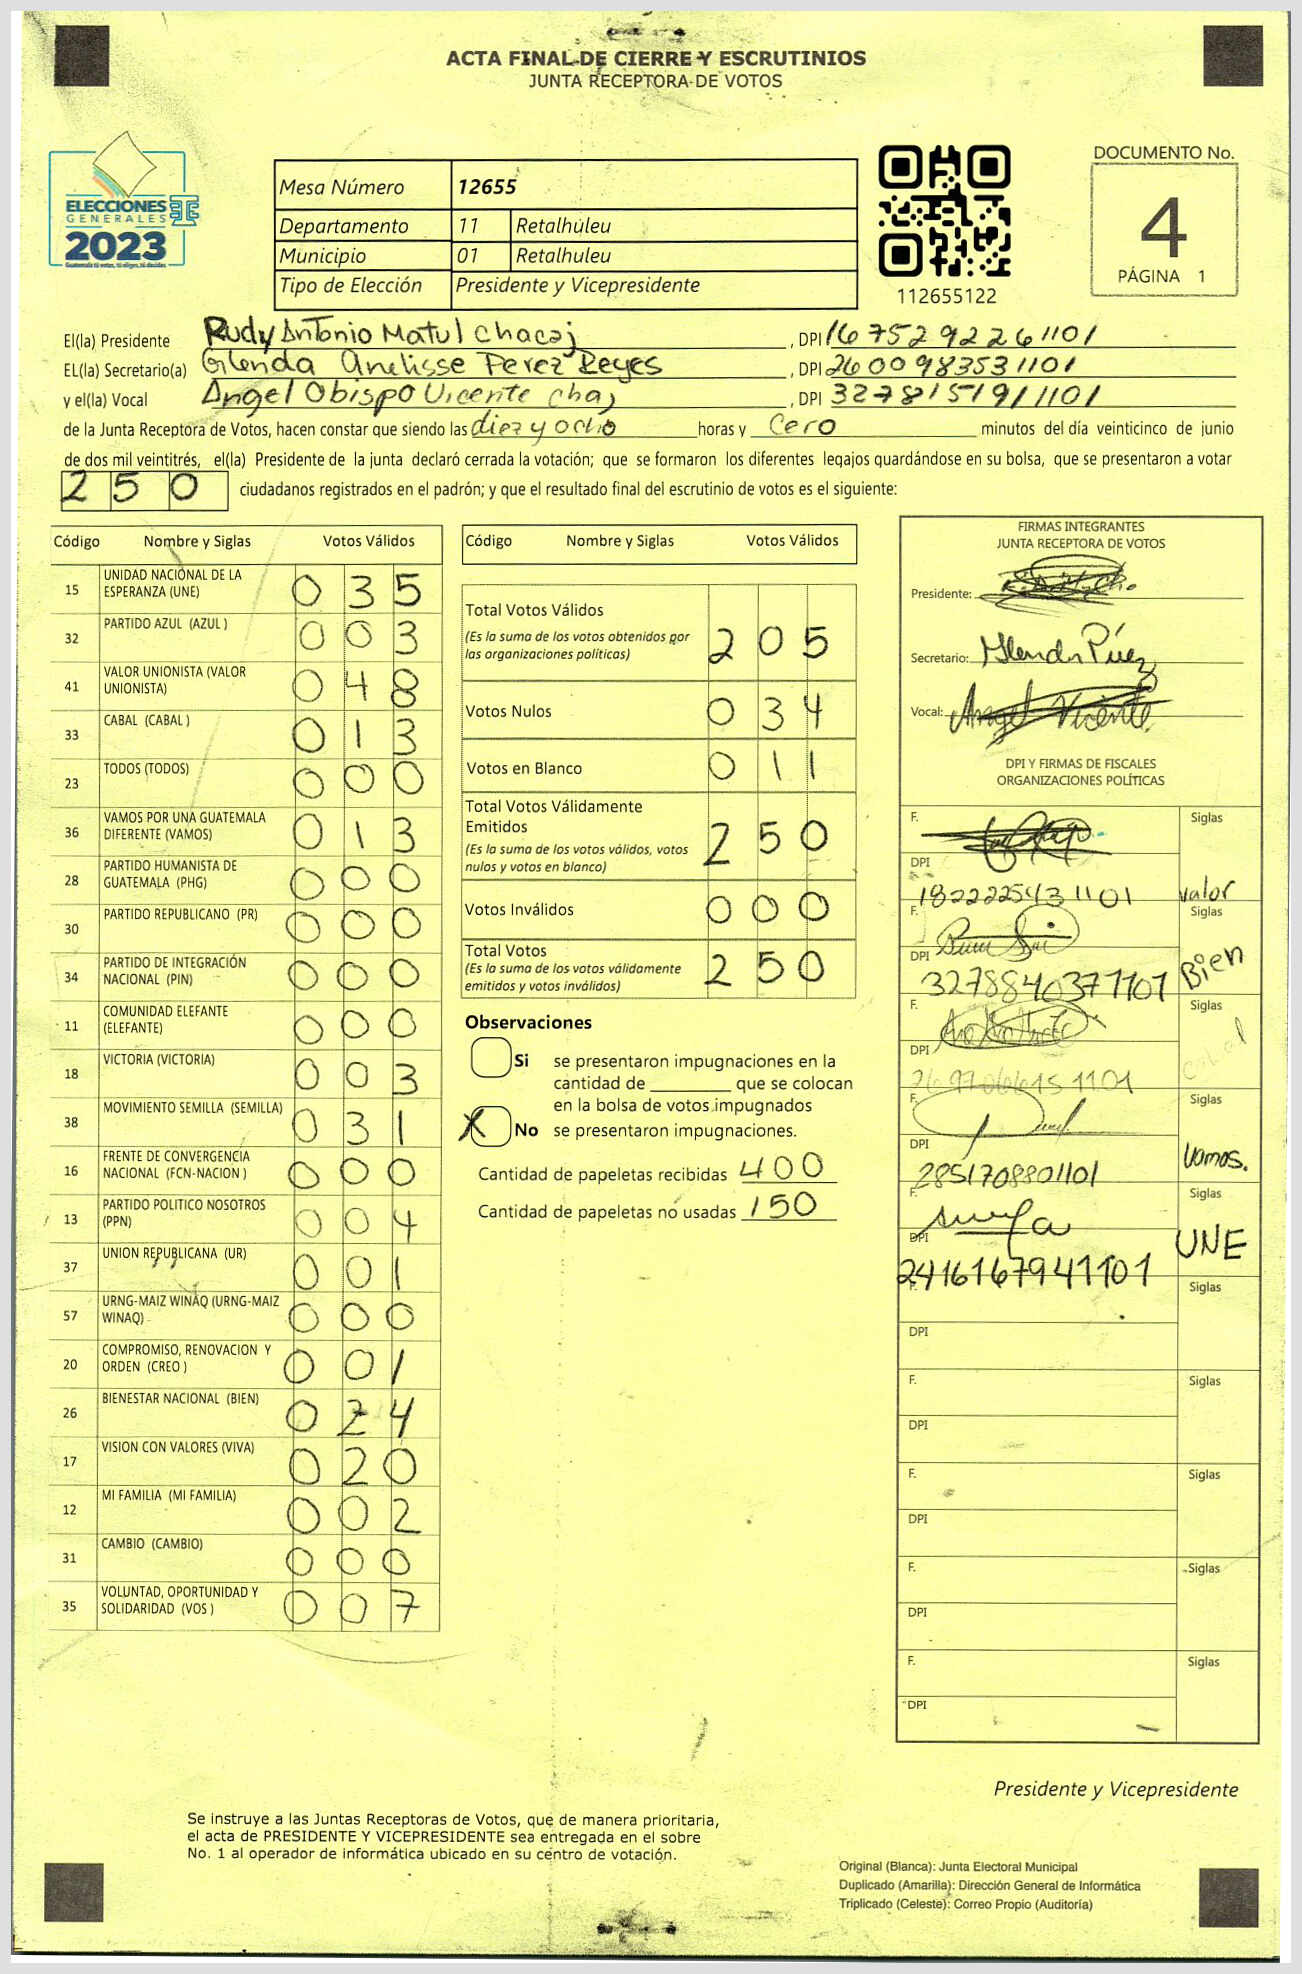 ACTA FINAL DE CIERRE Y ESCRUTINIOS
JUNTA RECEPTORA DE VOTOS
ELECCIONES
GENERALES
2023
Guatemala tú votas, tú eliges, tú decides
Mesa Número 12655
Departamento 11 Retalhuleu
Municipio 01 Retalhuleu
Tipo de Elección Presidente y Vicepresidente
112655122
DOCUMENTO No.
4
PÁGINA 1
El(la) Presidente Rudy Antonio Matul Chacaj, DPI 1675292261101
EL(la) Secretario(a) Glenda Anelisse Perez Reyes, DPI 2600983531101
y el(la) Vocal Angel Obispo Vicente Chaj, DPI 3278151911101
de la Junta Receptora de Votos, hacen constar que siendo las diez y ocho horas y Cero minutos del día veinticinco de junio
de dos mil veintitrés, el(la) Presidente de la junta declaró cerrada la votación; que se formaron los diferentes legajos guardándose en su bolsa, que se presentaron a votar
250 ciudadanos registrados en el padrón; y que el resultado final del escrutinio de votos es el siguiente:
Código Nombre y Siglas Votos Válidos
15 UNIDAD NACIONAL DE LA ESPERANZA (UNE) 035
32 PARTIDO AZUL (AZUL ) 003
41 VALOR UNIONISTA (VALOR UNIONISTA) 048
33 CABAL (CABAL ) 013
23 TODOS (TODOS) 000
36 VAMOS POR UNA GUATEMALA DIFERENTE (VAMOS) 013
28 PARTIDO HUMANISTA DE GUATEMALA (PHG) 000
30 PARTIDO REPUBLICANO (PR) 000
34 PARTIDO DE INTEGRACIÓN NACIONAL (PIN) 000
11 COMUNIDAD ELEFANTE (ELEFANTE) 000
18 VICTORIA (VICTORIA) 003
38 MOVIMIENTO SEMILLA (SEMILLA) 031
16 FRENTE DE CONVERGENCIA NACIONAL (FCN-NACION ) 000
13 PARTIDO POLITICO NOSOTROS (PPN) 004
37 UNION REPUBLICANA (UR) 001
57 URNG-MAIZ WINAQ (URNG-MAIZ WINAQ) 000
20 COMPROMISO, RENOVACION Y ORDEN (CREO ) 001
26 BIENESTAR NACIONAL (BIEN) 024
17 VISION CON VALORES (VIVA) 020
12 MI FAMILIA (MI FAMILIA) 002
31 CAMBIO (CAMBIO) 000
35 VOLUNTAD, OPORTUNIDAD Y SOLIDARIDAD (VOS ) 007
Código Nombre y Siglas Votos Válidos
Total Votos Válidos 205
(Es la suma de los votos obtenidos por
las organizaciones políticas)
Votos Nulos 034
Votos en Blanco 011
Total Votos Válidamente
Emitidos 250
(Es la suma de los votos válidos, votos
nulos y votos en blanco)
Votos Inválidos 000
Total Votos 250
(Es la suma de los votos válidamente
emitidos y votos inválidos)
Observaciones
Si se presentaron impugnaciones en la
cantidad de ________ que se colocan
en la bolsa de votos impugnados
X No se presentaron impugnaciones.
Cantidad de papeletas recibidas 400
Cantidad de papeletas no usadas 150
FIRMAS INTEGRANTES
JUNTA RECEPTORA DE VOTOS
Presidente:
Secretario: Glenda Pérez
Vocal: Angel Vicente
DPI Y FIRMAS DE FISCALES
ORGANIZACIONES POLÍTICAS
F. Siglas
DPI 1822225431101 valor
F. Siglas
DPI 3278840371101 Bien
F. Siglas
DPI 2697066151101 Cabal
F. Siglas
DPI 2851708801101 Vamos.
F. Siglas
DPI 2416167941101 UNE
F. Siglas
DPI
F. Siglas
DPI
F. Siglas
DPI
F. Siglas
DPI
F. Siglas
DPI
Presidente y Vicepresidente
Se instruye a las Juntas Receptoras de Votos, que de manera prioritaria,
el acta de PRESIDENTE Y VICEPRESIDENTE sea entregada en el sobre
No. 1 al operador de informática ubicado en su centro de votación.
Original (Blanca): Junta Electoral Municipal
Duplicado (Amarilla): Dirección General de Informática
Triplicado (Celeste): Correo Propio (Auditoría)